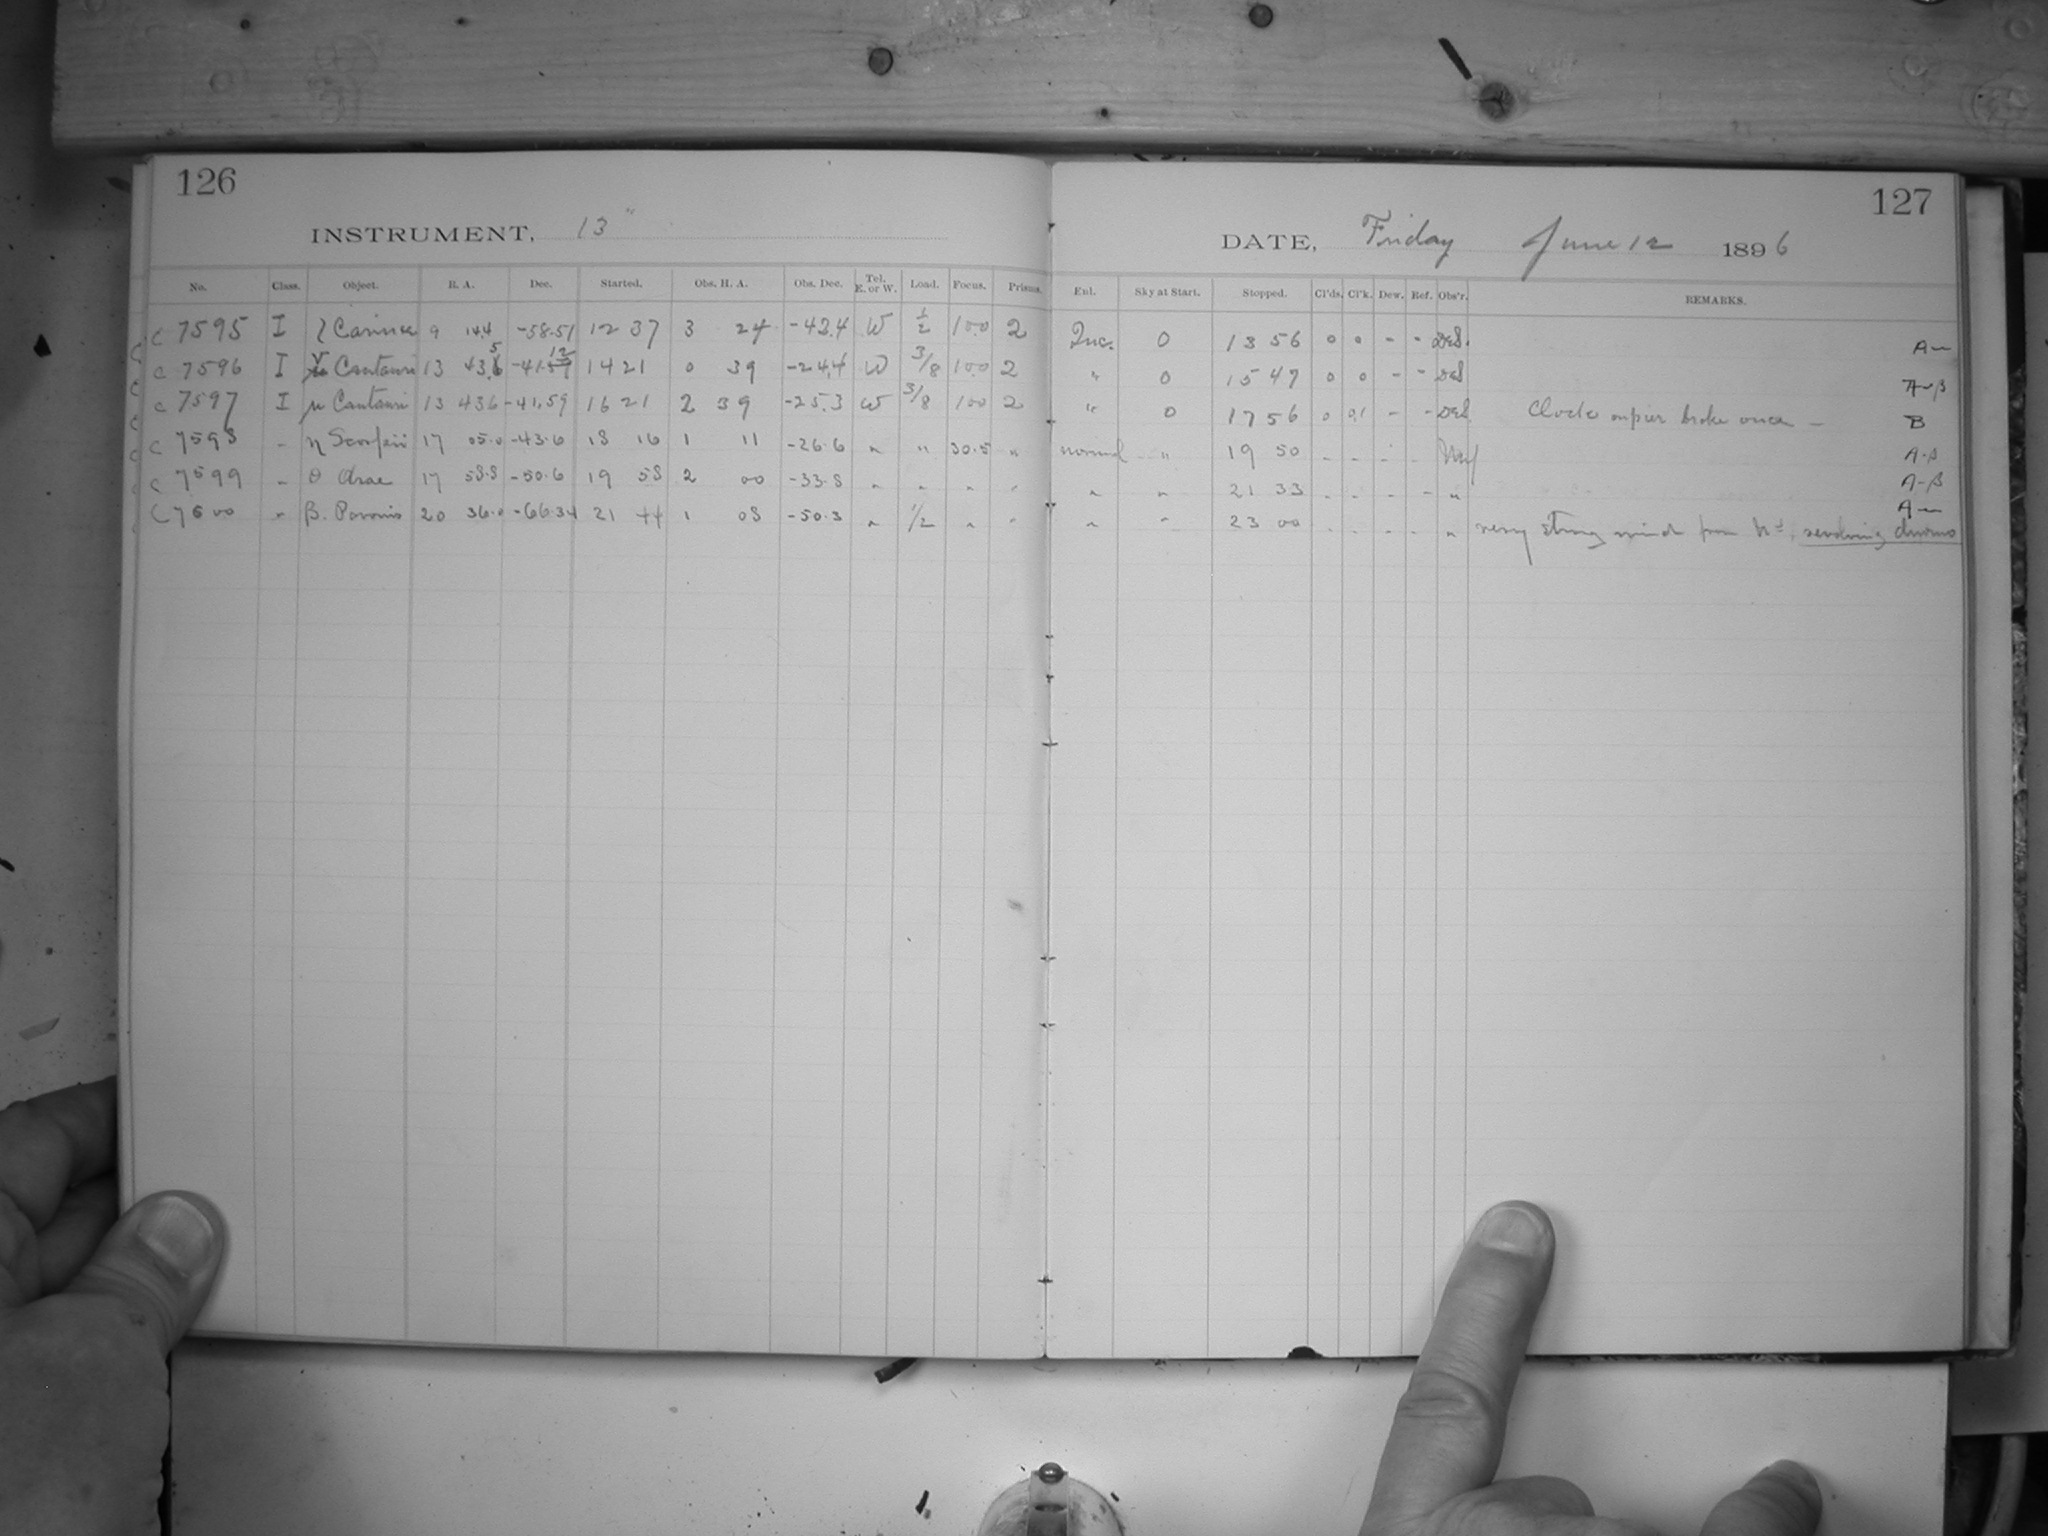 126
INSTRUMENT, 13"
No. Class. Object. R. A. Dec. Started. Obs. H. A. Obs. Dec. Tel. E. or W. Load. Focus. Prisms.
C 7595 I l Carinae 9 14.4 -58.51 12 37 3 24 -42.4 W 1/2 10.0 2
C 7596 I ν Centauri 13 43.5 -41.12 14 21 0 39 -24.4 W 3/8 10.0 2
C 7597 I μ Centauri 13 43.6 -41.59 16 21 2 39 -25.3 W 3/8 10.0 2
C 7598 " η Scorpii 17 05.0 -43.6 18 16 1 11 -26.6 " " 30.5 "
C 7599 " θ Arae 17 58.8 -50.6 19 58 2 00 -33.8 " " " "
C 7600 " β. Pavonis 20 36.0 -66.34 21 44 1 08 -50.3 " 1/2 " "
127
DATE, Friday June 12 1896
Enl. Sky at Start. Stopped. Cl'ds. Cl'k. Dew. Ref. Obs'r. REMARKS.
Inc. 0 13 56 0 0 - - DeS. A—
" 0 15 47 0 0 - - DeS A-β
" 0 17 56 0 0.1 - - DeS Clock on pier broke once — B
normal " 19 50 - - - - A-β
" " 21 33 - - - - " A-β
" " 23 00 - - - - " A—
very strong wind from revolving